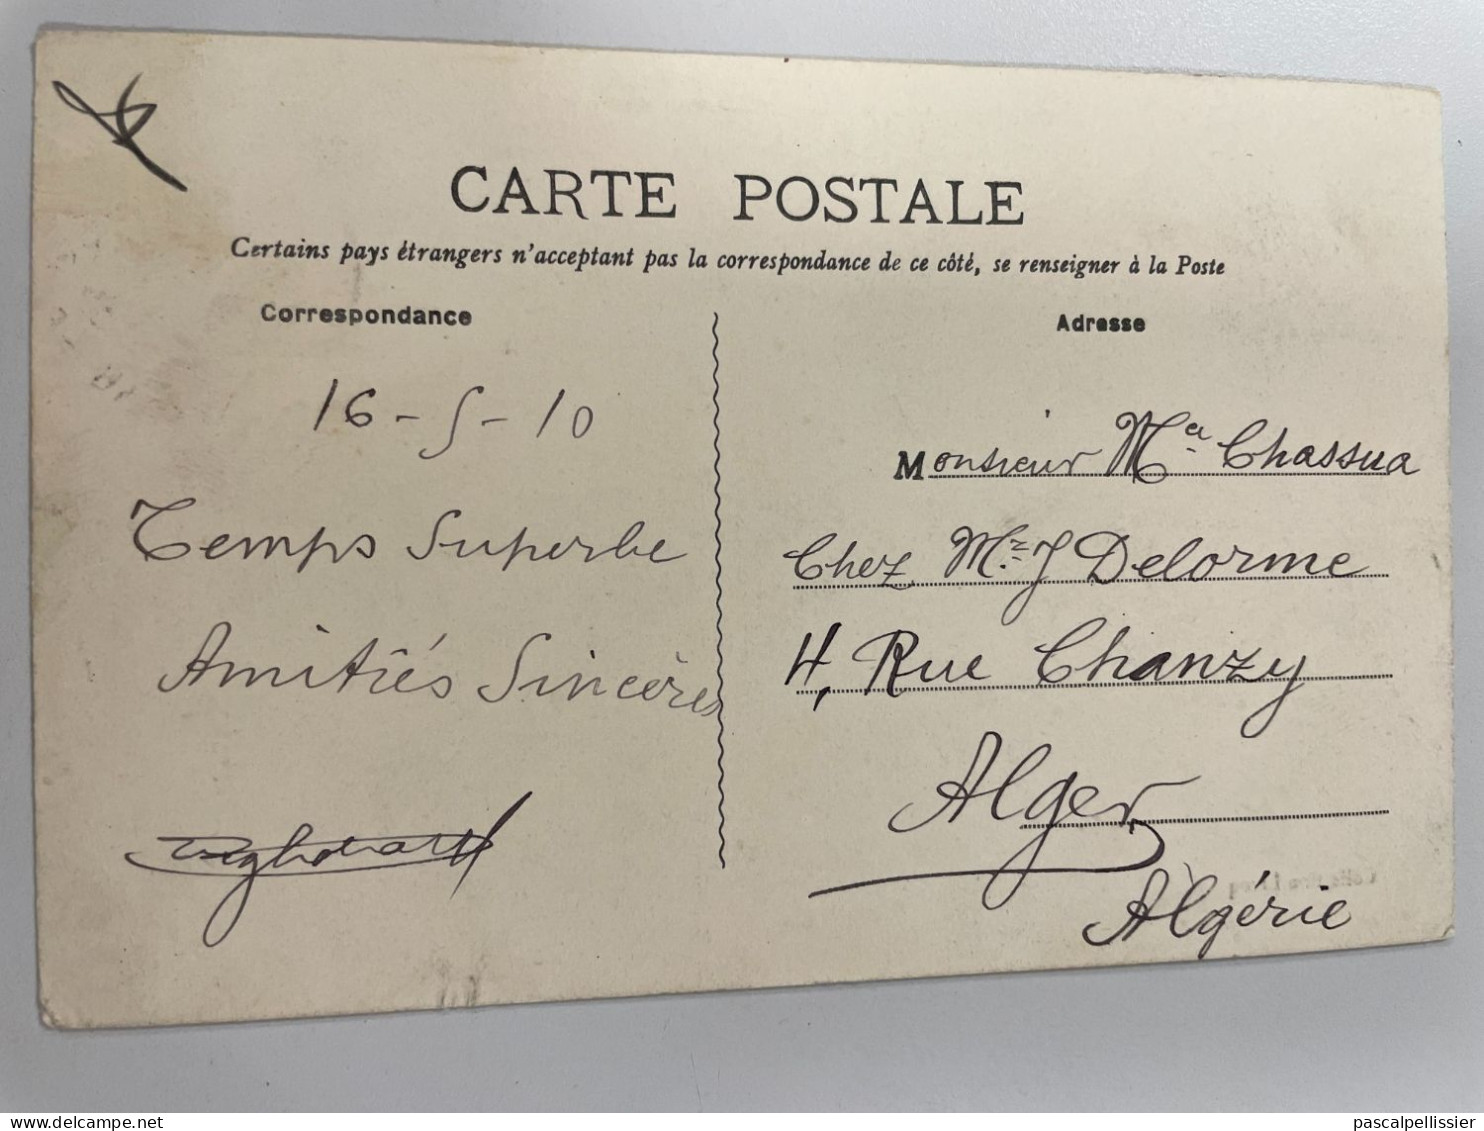 CARTE POSTALE
Certains pays étrangers n'acceptant pas la correspondance de ce côté, se renseigner à la Poste
Correspondance
16-5-10
Temps Superbe
Amitiés Sincères
Adresse
Monsieur Mel Chassua
Chez Mr. J Delorme
4, Rue Chanzy
Alger
Algérie
pascalpellissier